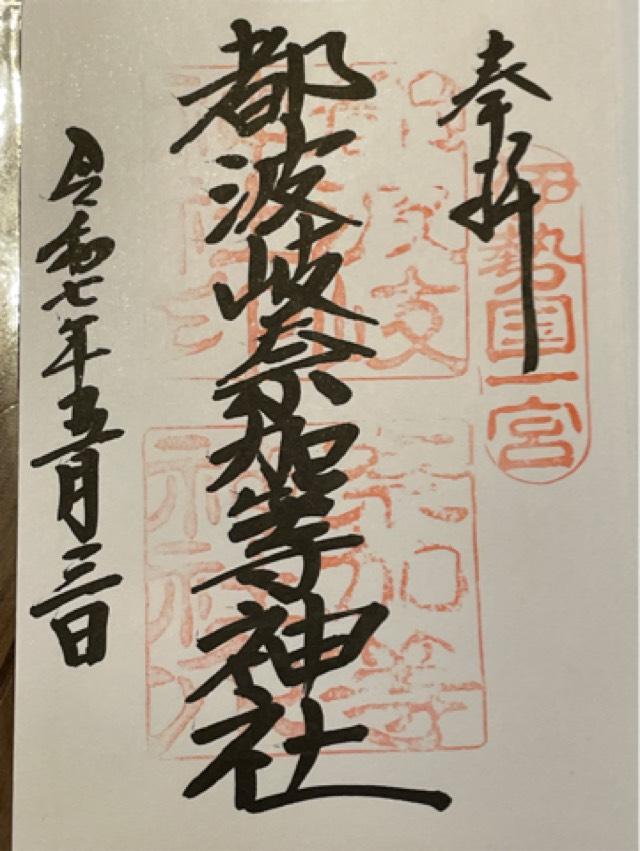 奉拝
伊勢国一宮
都波岐奈加等神社
奈加等
令和七年五月三日